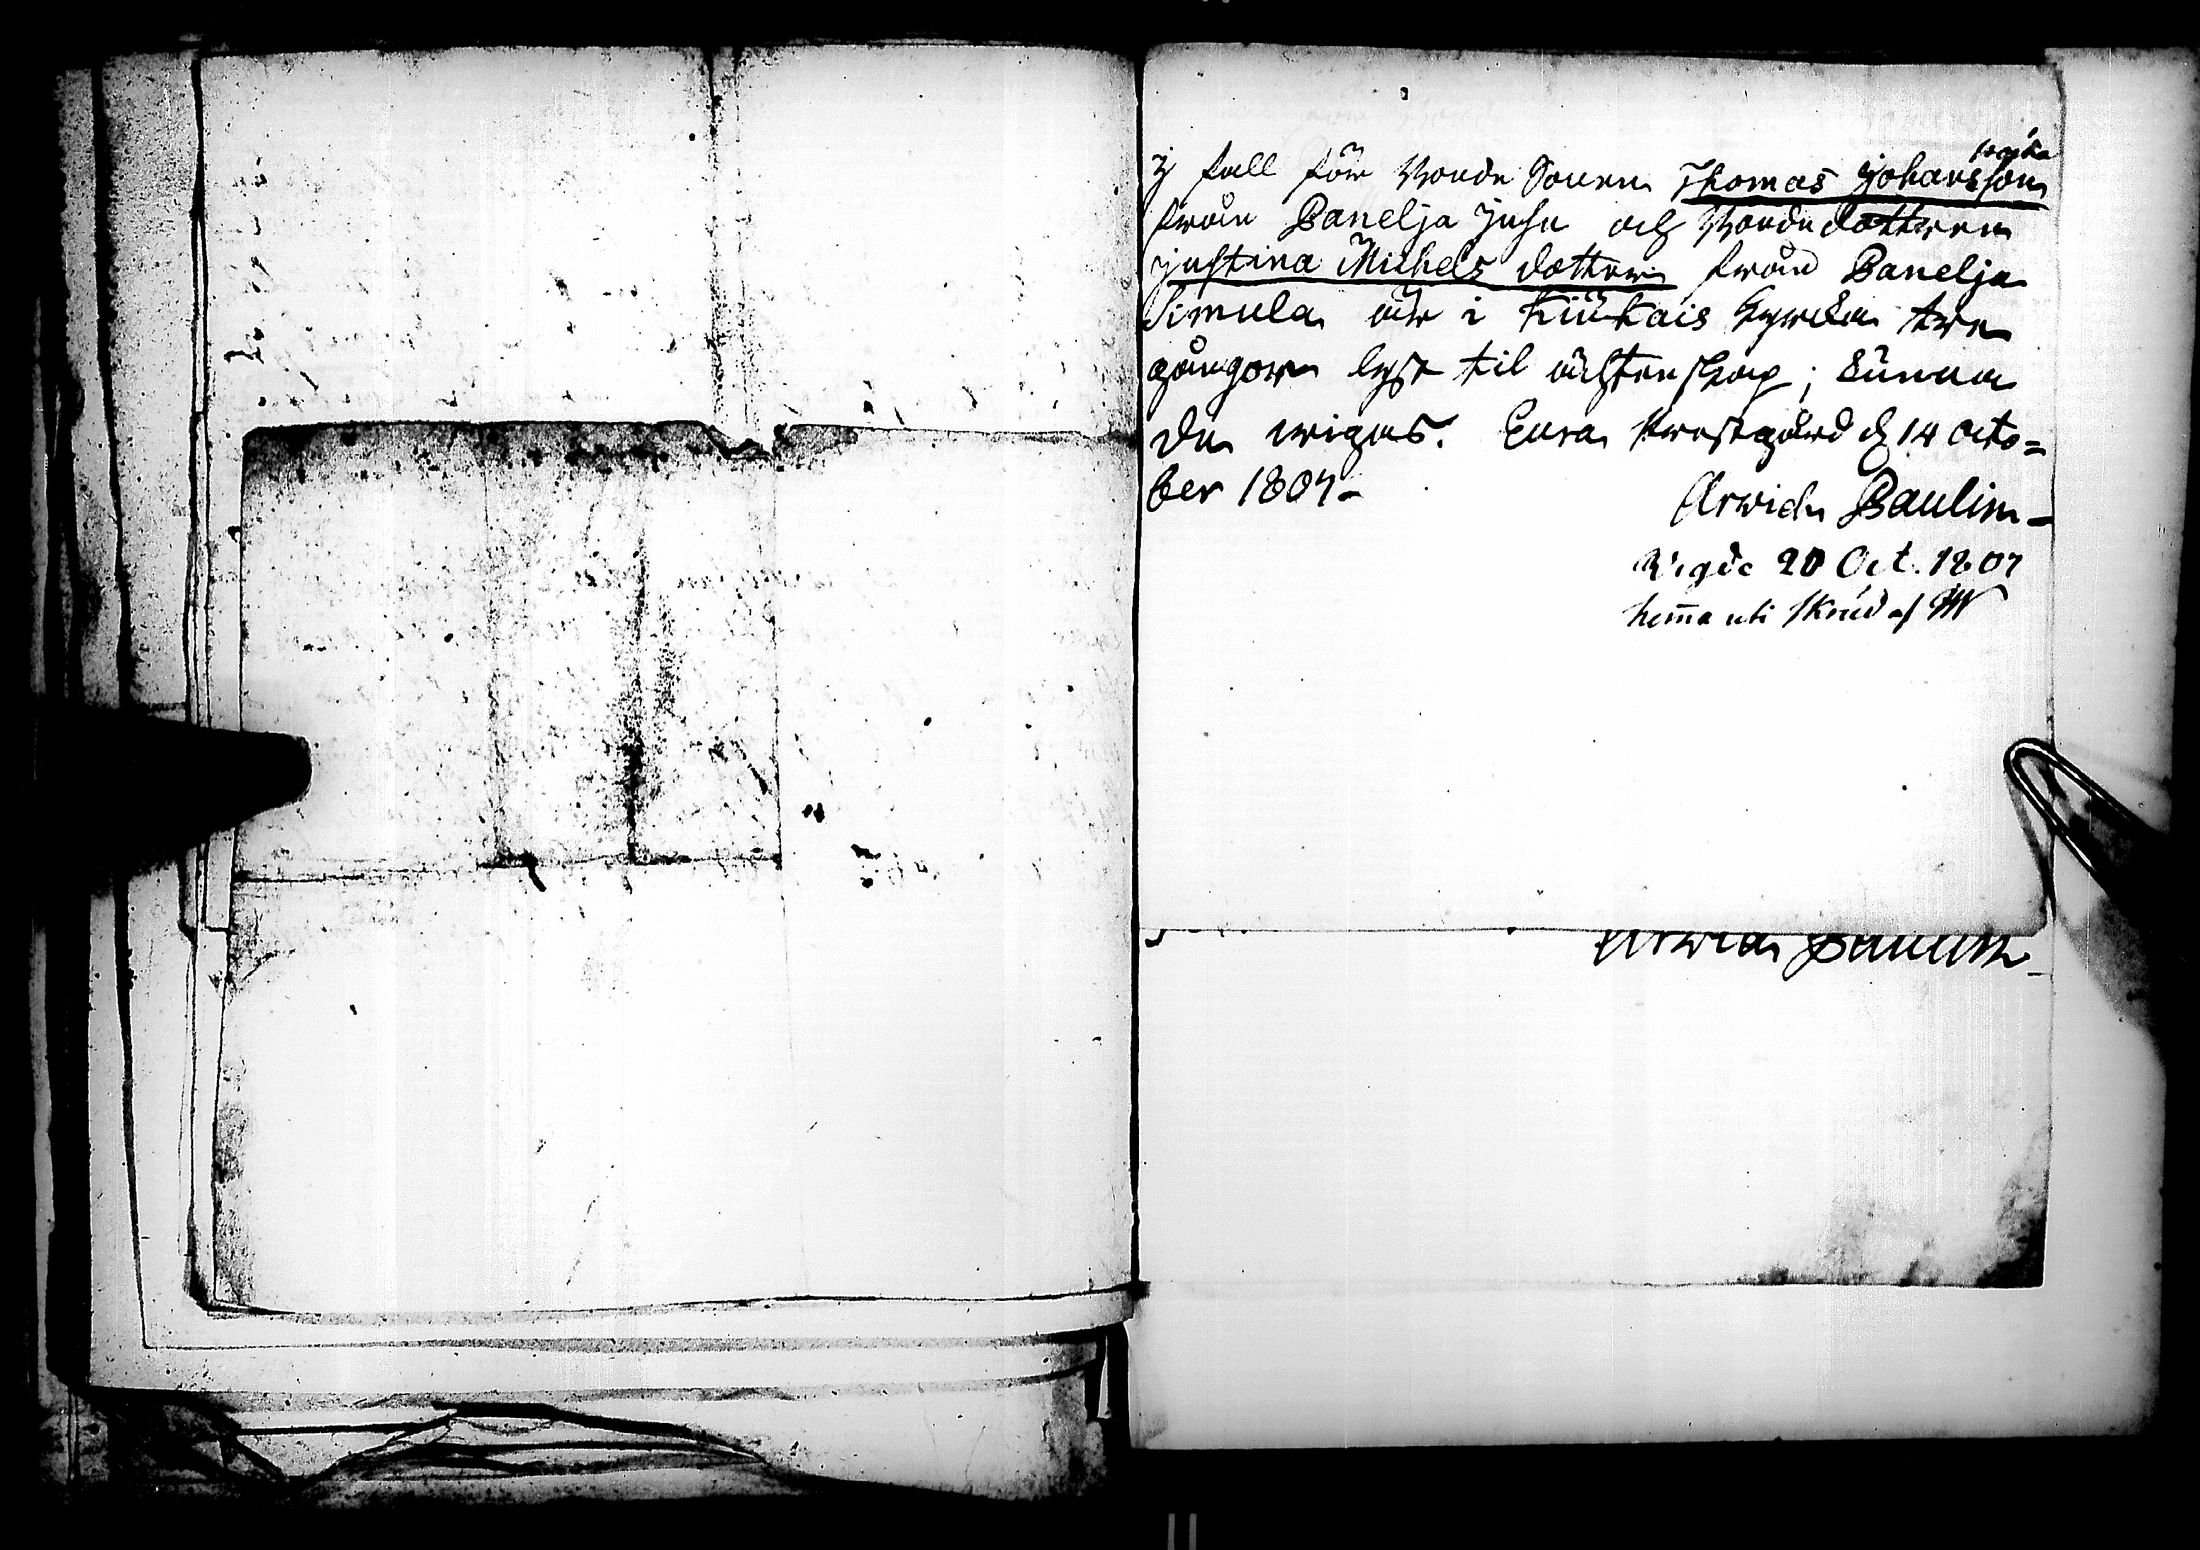 J fall för Bonde Sonen Thomas Johansson
från Panelja Juhn och Bondedottren
Justina Michels dotter från Panelja
Simula är i Kiukais Kyrcka tre
gångor lyst til ächtenskap; kunna
de wigas. Eura Prestgård d 14 Octo=
ber 1807-
Arwid Paulin-
Wigde 20 Oct. 1807
hem̄a uti skrud af
Arwid Paulin